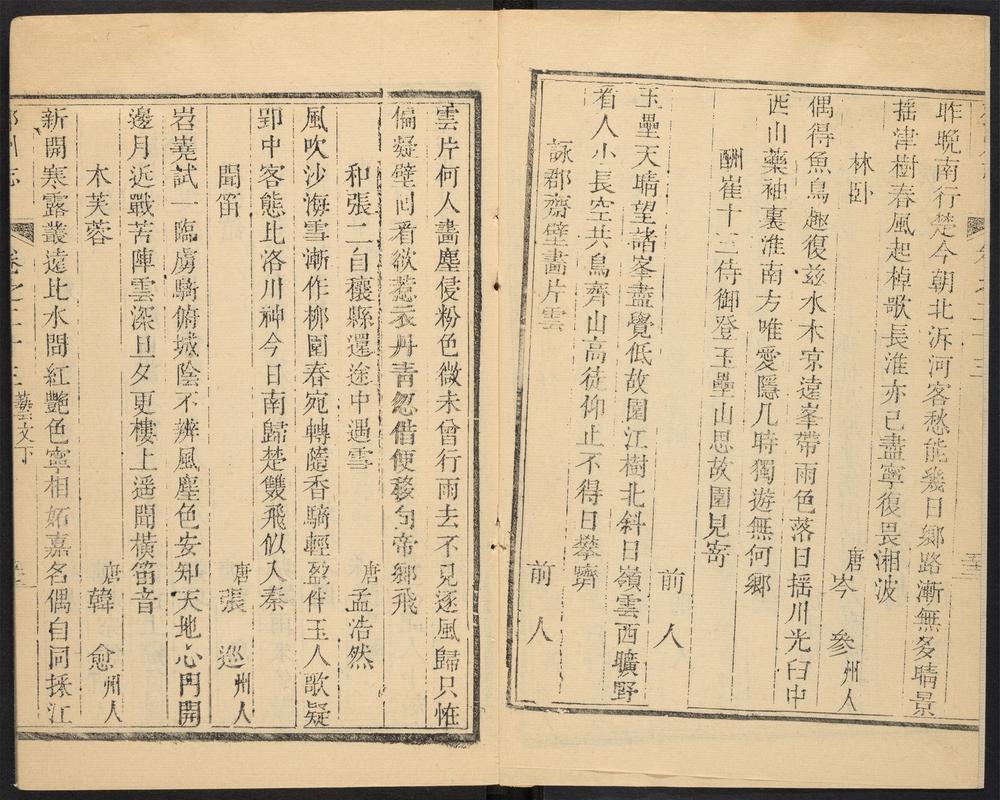 昨晚南行楚今朝北泝河客愁能幾日鄉路漸無多晴景
搖津樹春風起棹歌長淮亦已盡寧復畏湘波
林卧 唐岑參州人
偶得魚鳥趣復茲水木凉遠峯帶雨色落日搖川光臼中
西山藥袖裏淮南方唯愛隱几時獨遊無何鄉
酬崔十三侍御登玉壘山思故園見寄 前人
玉壘天晴望諸峯盡覺低故園江樹北斜日嶺雲西曠野
看人小長空共鳥齊山高徒仰止不得日攀躋
詠郡齋壁畫片雲 前人
雲片何人畫塵侵粉色微未曾行雨去不見逐風歸只恠
偏凝壁回看欲惹衣丹青忽借便移向帝鄉飛
和張二自穰縣還途中遇雪 唐孟浩然
風吹沙海雪漸作柳園春宛轉隨香騎輕盈伴玉人歌疑
郢中客態比洛川神今日南歸楚雙飛似入秦
聞笛 唐張巡州人
岧嶤試一臨虜騎俯城陰不辨風塵色安知天地心門開
邊月近戰苦陣雲深旦夕更樓上遥聞橫笛音
木芙蓉 唐韓愈州人
新開寒露叢遠比水間紅艷色寧相妬嘉名偶自同採江
卷之二十三 藝文下